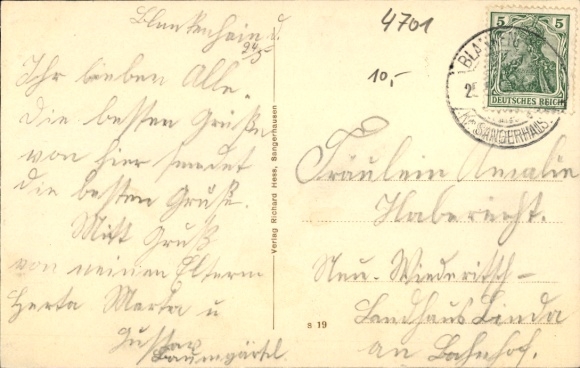 Blankenhein d.
24/5
Ihr lieben Alle.
Die besten Grüße
von hier sendet
die besten Grüße.
Mitt Gruß
von meinen Eltern
Herta Marta u
Gustav
Baumgärtel.
Verlag Richard Hess, Sangerhausen
4701
10,-
5 5
DEUTSCHES REICH
SANGERHAUS.
Fräulein Amalie
Haberecht.
Neu-Wiederitsch-
Landhaus Linda
an Bahnhof.
s 19